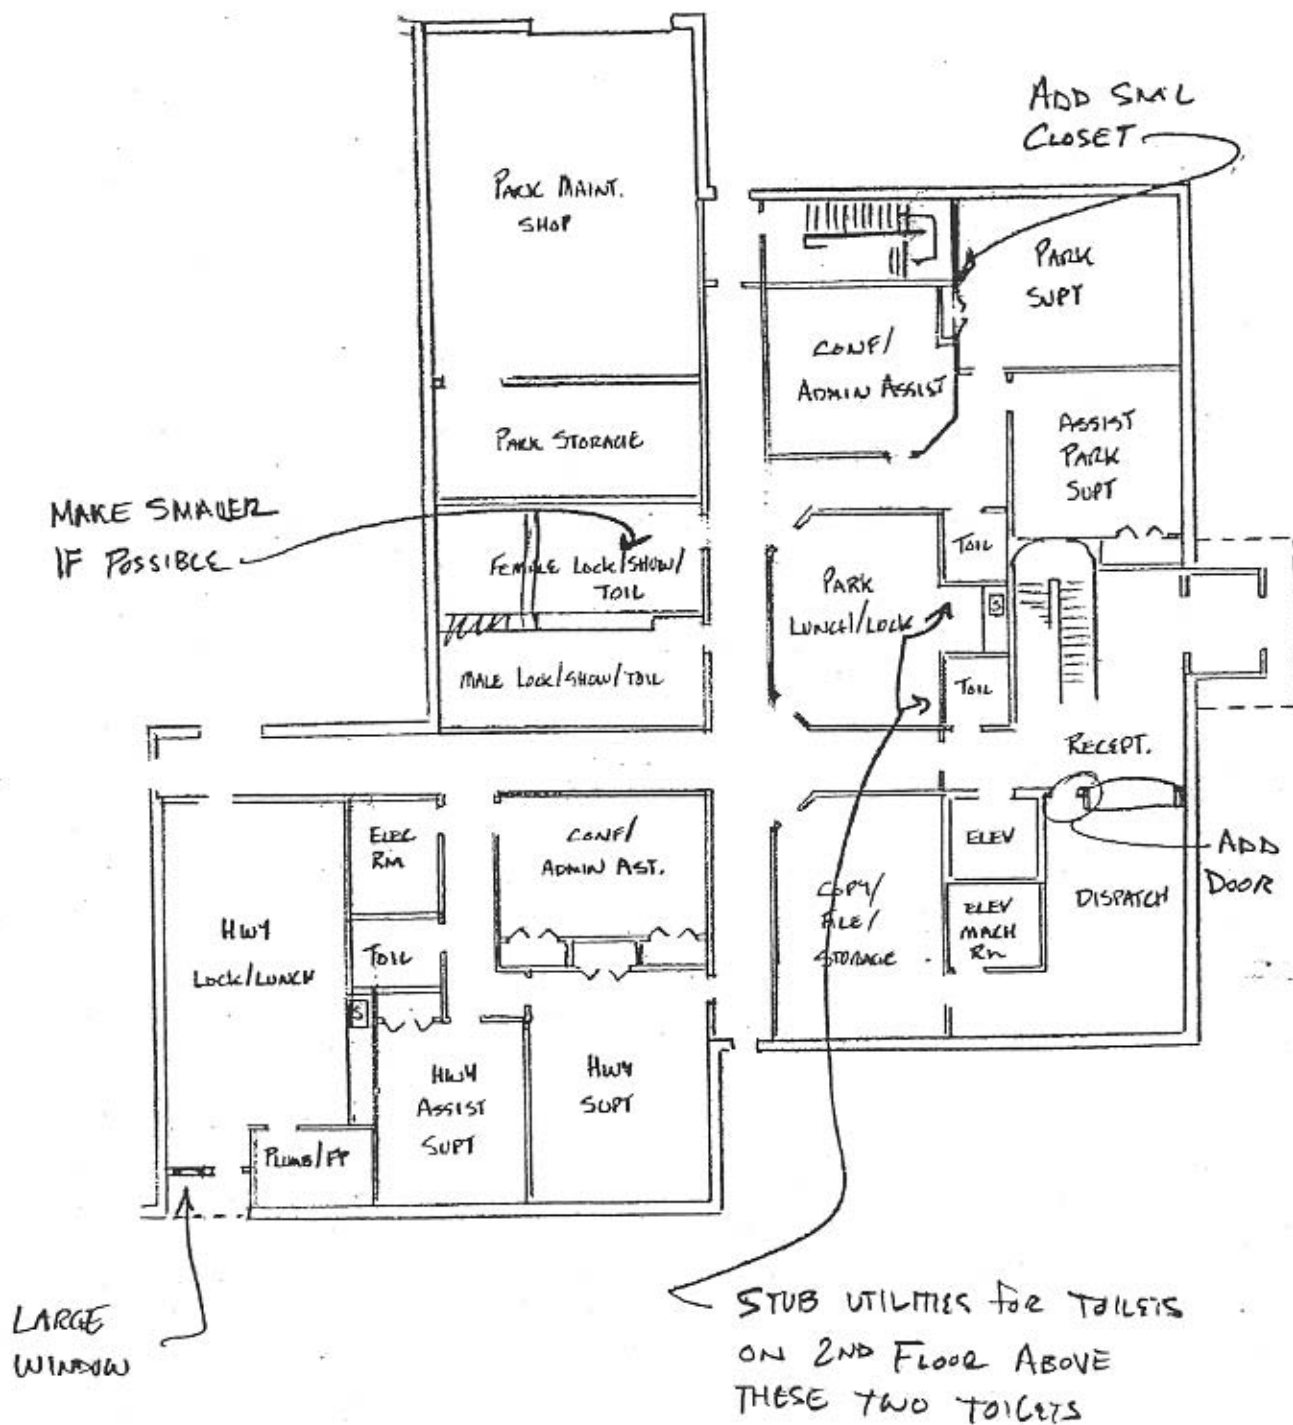 ADD SM'L
CLOSET
PARK MAINT.
SHOP
PARK
SUPT
CONF/
ADMIN ASSIST
PARK STORAGE
ASSIST
PARK
SUPT
MAKE SMALLER
IF POSSIBLE
FEMALE LOCK/SHOW/
TOIL
TOIL
PARK
LUNCH/LOCK
S
MALE LOCK/SHOW/TOIL
TOIL
RECEPT.
ELEC
RM
CONF/
ADMIN AST.
ELEV
ADD
DOOR
COPY/
FILE/
STORAGE
ELEV
MACH
RM
DISPATCH
HWY
LOCK/LUNCH
TOIL
S
HWY
ASSIST
SUPT
HWY
SUPT
PLUMB/FP
LARGE
WINDOW
STUB UTILITIES for TOILETS
ON 2ND FLOOR ABOVE
THESE TWO TOILETS